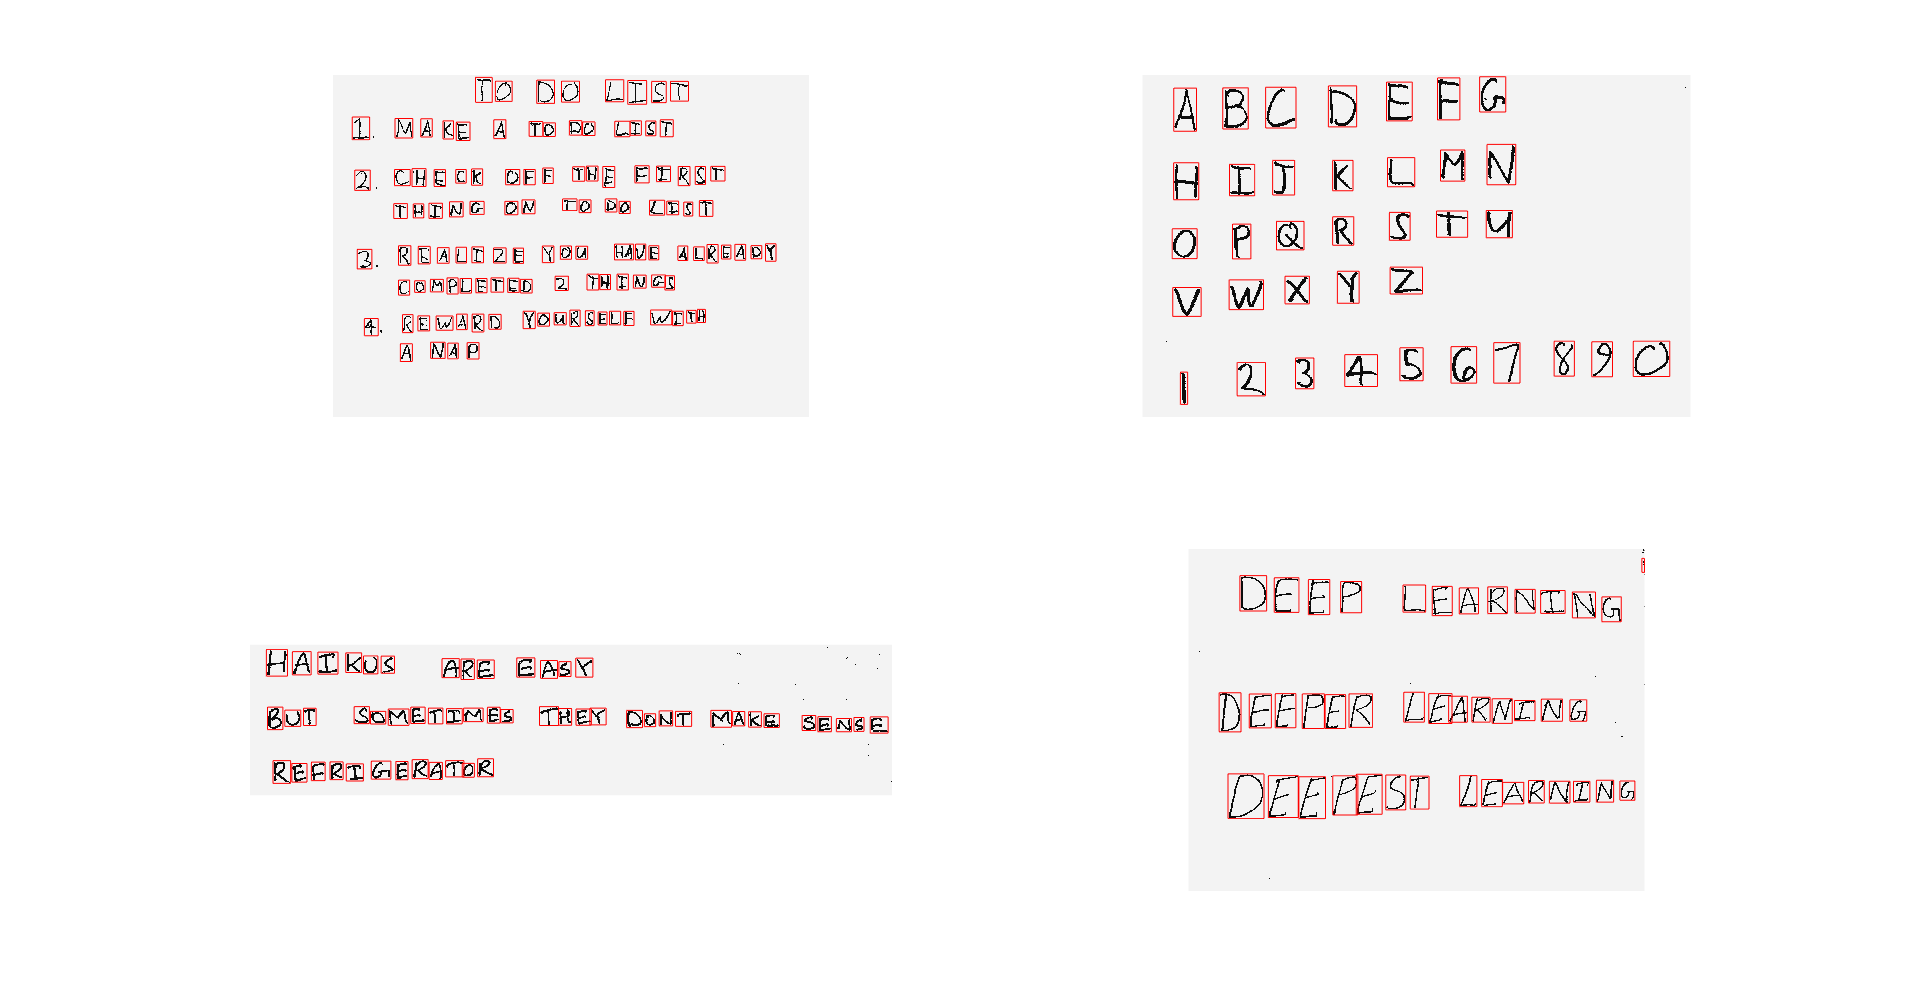 TO DO LIST
1. MAKE A TO DO LIST
2. CHECK OFF THE FIRST
THING ON TO DO LIST
3. REALIZE YOU HAVE ALREADY
COMPLETED 2 THINGS
4. REWARD YOURSELF WITH
A NAP
A B C D E F G
H I J K L M N
O P Q R S T U
V W X Y Z
1 2 3 4 5 6 7 8 9 0
HAIKUS ARE EASY
BUT SOMETIMES THEY DONT MAKE SENSE
REFRIGERATOR
DEEP LEARNING
DEEPER LEARNING
DEEPEST LEARNING